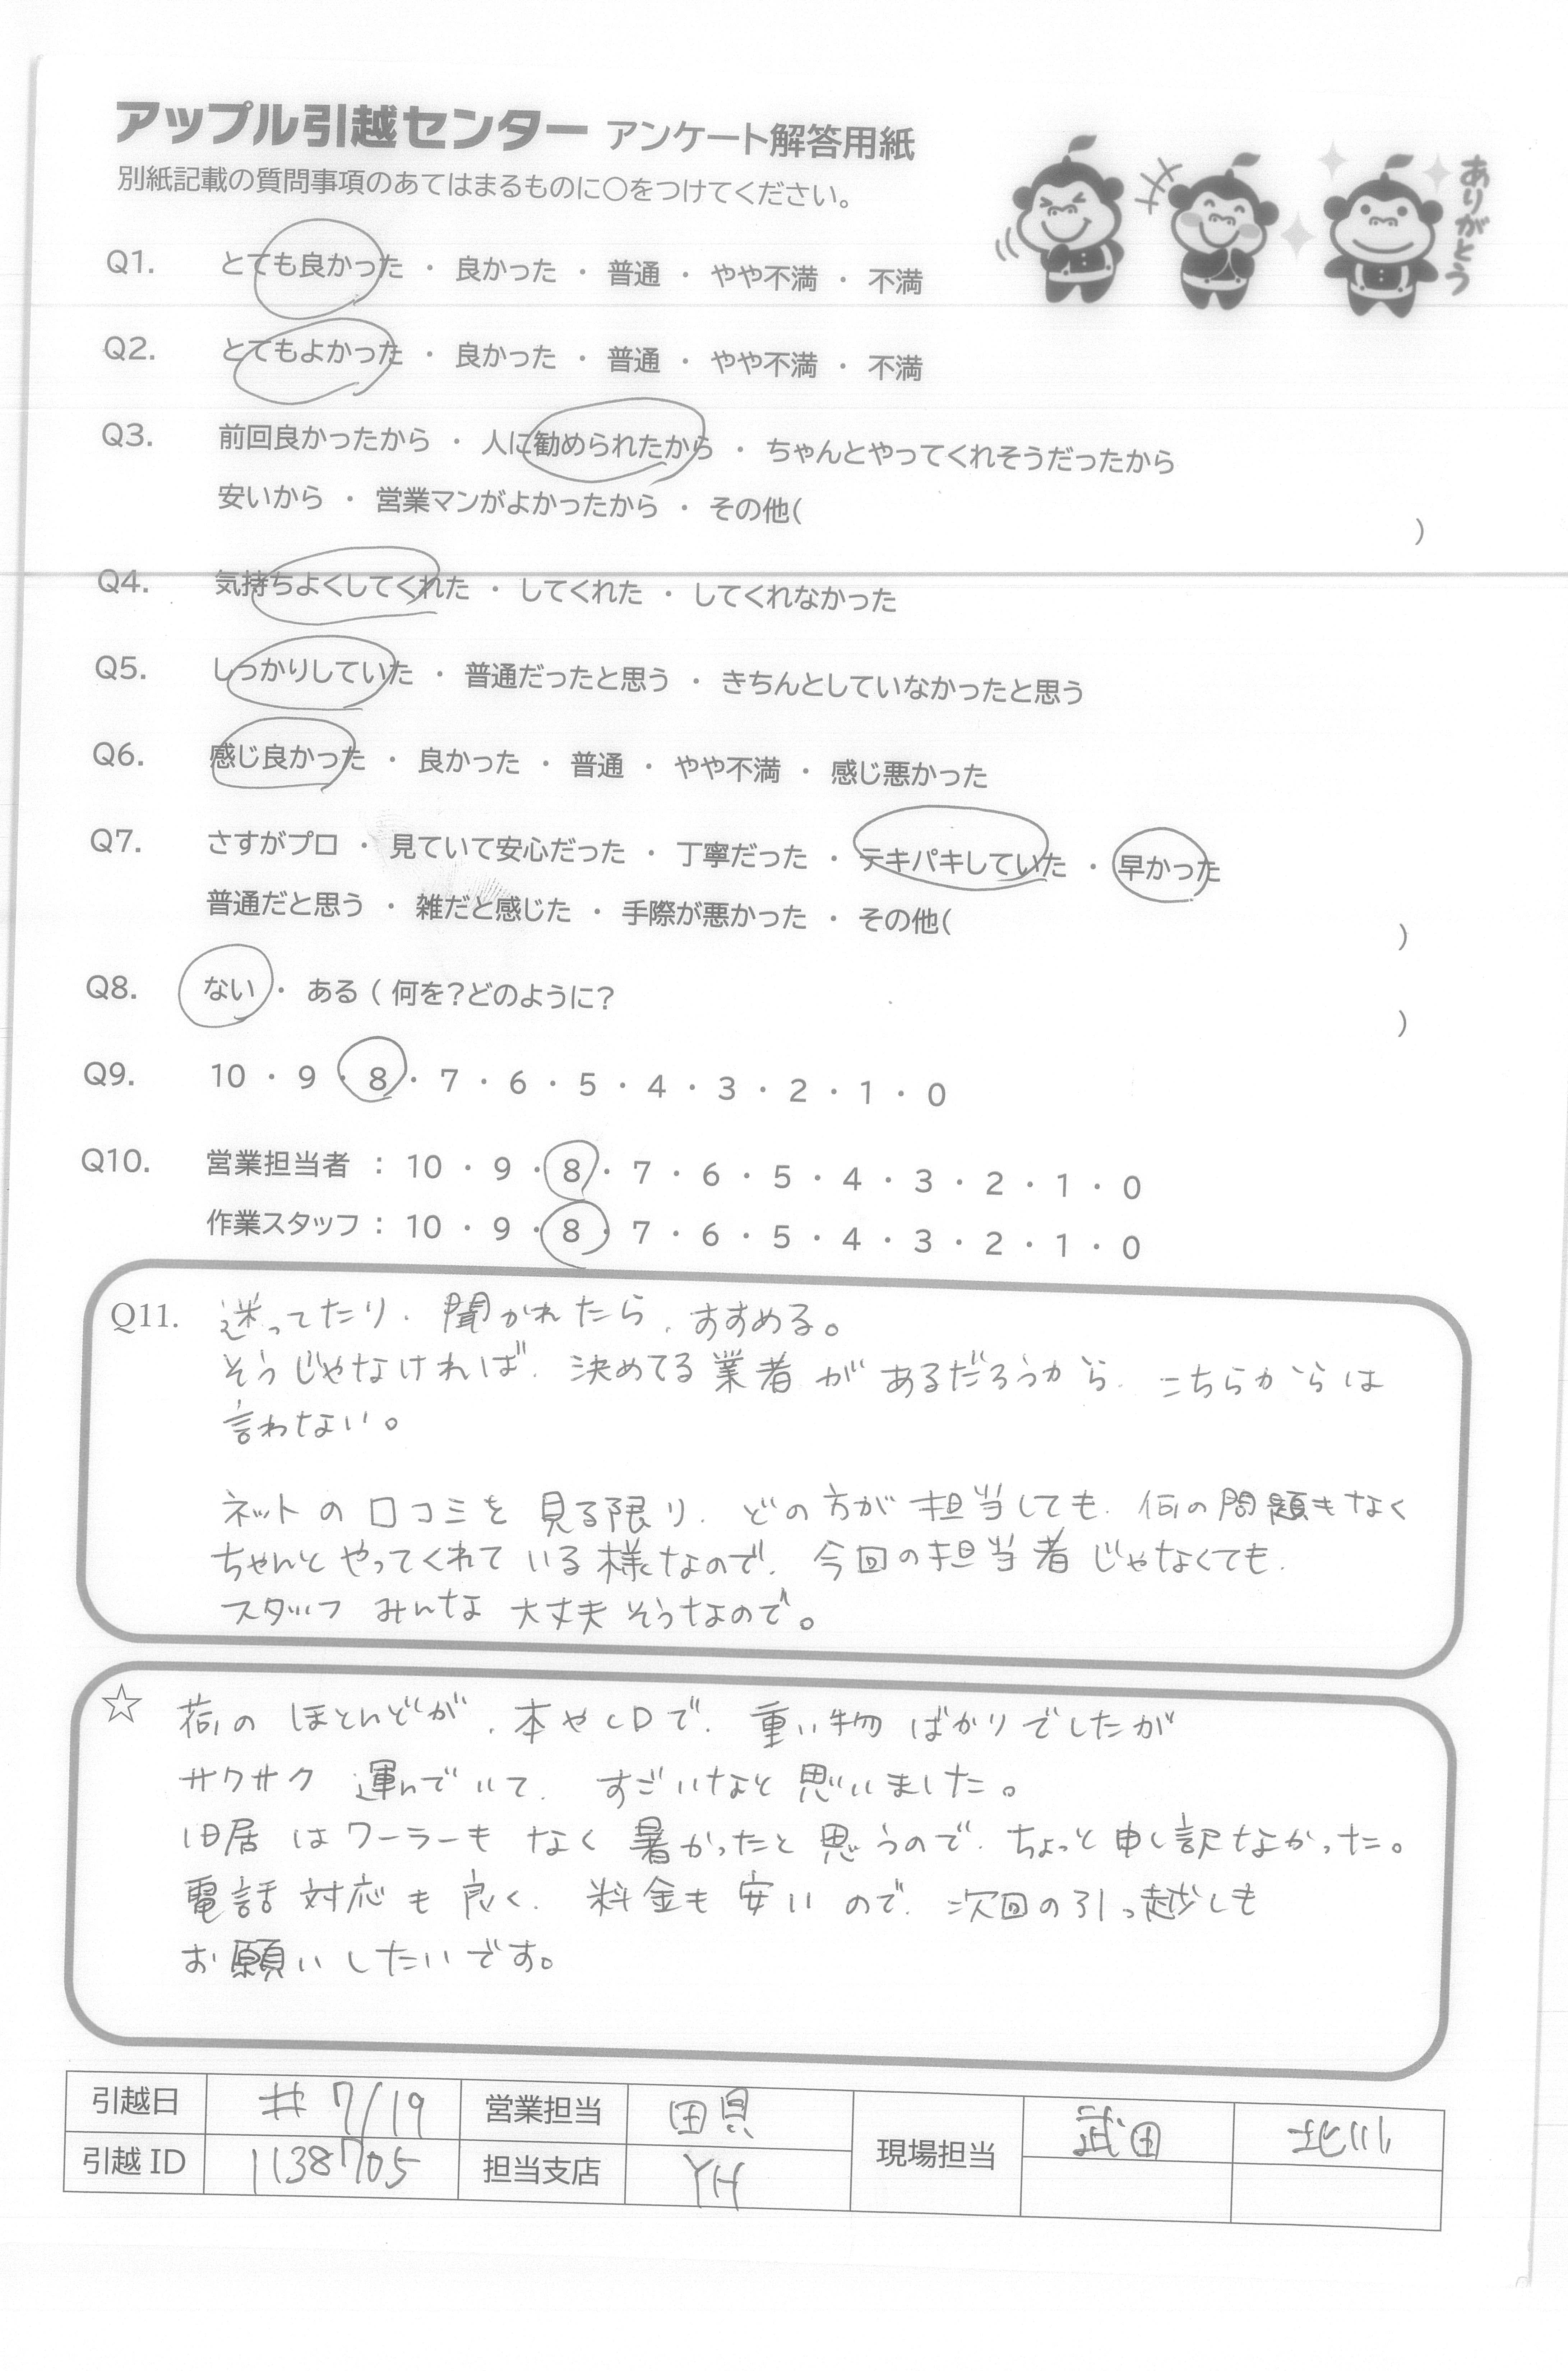 アップル引越センター アンケート解答用紙
別紙記載の質問事項のあてはまるものに○をつけてください。
ありがとう
Q1. とても良かった ・ 良かった ・ 普通 ・ やや不満 ・ 不満
Q2. とてもよかった ・ 良かった ・ 普通 ・ やや不満 ・ 不満
Q3. 前回良かったから ・ 人に勧められたから ・ ちゃんとやってくれそうだったから
安いから ・ 営業マンがよかったから ・ その他( )
Q4. 気持ちよくしてくれた ・ してくれた ・ してくれなかった
Q5. しっかりしていた ・ 普通だったと思う ・ きちんとしていなかったと思う
Q6. 感じ良かった ・ 良かった ・ 普通 ・ やや不満 ・ 感じ悪かった
Q7. さすがプロ ・ 見ていて安心だった ・ 丁寧だった ・ テキパキしていた ・ 早かった
普通だと思う ・ 雑だと感じた ・ 手際が悪かった ・ その他( )
Q8. ない ・ ある ( 何を？どのように？ )
Q9. 10 ・ 9 ・ 8 ・ 7 ・ 6 ・ 5 ・ 4 ・ 3 ・ 2 ・ 1 ・ 0
Q10. 営業担当者 : 10 ・ 9 ・ 8 ・ 7 ・ 6 ・ 5 ・ 4 ・ 3 ・ 2 ・ 1 ・ 0
作業スタッフ : 10 ・ 9 ・ 8 ・ 7 ・ 6 ・ 5 ・ 4 ・ 3 ・ 2 ・ 1 ・ 0
Q11. 迷ってたり、聞かれたら、すすめる。
そうじゃなければ、決めてる業者があるだろうから、こちらからは
言わない。
ネットの口コミを見る限り、どの方が担当しても、何の問題もなく
ちゃんとやってくれている様なので、今回の担当者じゃなくても、
スタッフみんな大丈夫そうなので。
☆ 荷のほとんどが、本やCDで、重い物ばかりでしたが
サクサク運んでいて、すごいなと思いました。
旧居はクーラーもなく暑かったと思うので、ちょっと申し訳なかった。
電話対応も良く、料金も安いので、次回の引っ越しも
お願いしたいです。
引越日 7/19 営業担当 現場担当 武田 北川
引越 ID 1138705 担当支店 YH